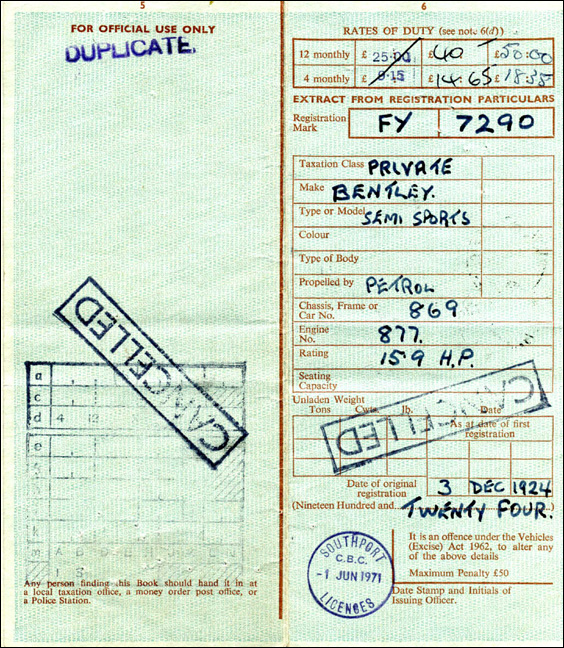 5
FOR OFFICIAL USE ONLY
DUPLICATE.
CANCELLED
a
c
d 4 12
e
Any person finding this Book should hand it in at
a local taxation office, a money order post office, or
a Police Station.
6
RATES OF DUTY (see note 6(d))
12 monthly £ 25.00 £ 40 - £ 50.00
4 monthly £ 9.15 £ 14.65 £ 18.35
EXTRACT FROM REGISTRATION PARTICULARS
Registration
Mark FY 7290
Taxation Class PRIVATE
Make BENTLEY.
Type or Model SEMI SPORTS
Colour
Type of Body
Propelled by PETROL
Chassis, Frame or
Car No. 869
Engine
No. 877.
Rating 15·9 H.P.
Seating
Capacity
CANCELLED
Unladen Weight
Tons Cwts. lb. Date
As at date of first
registration
Date of original
registration 3 DEC 1924
(Nineteen Hundred and TWENTY FOUR.)
SOUTHPORT
C.B.C.
-1 JUN 1971
LICENCES
It is an offence under the Vehicles
(Excise) Act 1962, to alter any
of the above details
Maximum Penalty £50
Date Stamp and Initials of
Issuing Officer.